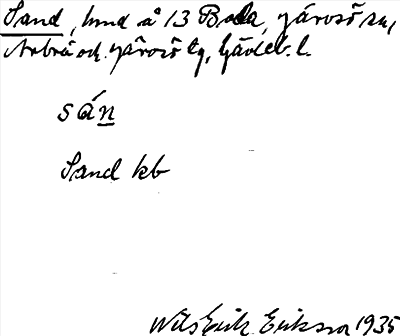 Sand, hmd å 13 Bole, Järvsö sn,
Arbrå och Järvsö tg, Gävleb. l.
sán
Sand kb
Nils Erik Eriksson 1935